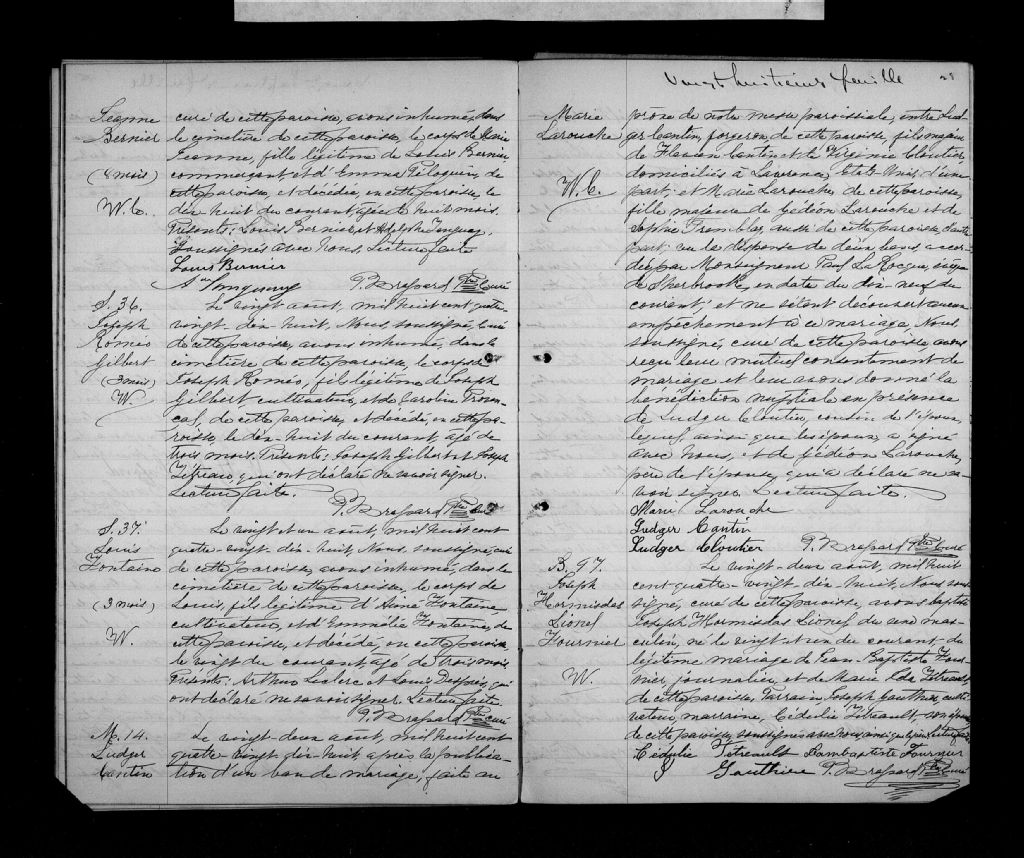 Jeanne
Bernier
(8 mois)
W.C.
curé de cette paroisse, avons inhumé, dans
le cimetière de cette paroisse, le corps de Marie
Jeanne, fille légitime de Louis Bernier,
commerçant et d'Emma Péloquin, de
cette paroisse, et décédée, en cette paroisse, le
dix-huit du courant, âgée de huit mois.
Présents: Louis Bernier et Adolphe Tanguay,
Soussignés avec Nous. Lecture faite
Louis Bernier
P. Brassard Ptre Curé
S. 36.
Joseph
Roméo
Gilbert
(3 mois)
W
Le vingt août, mil huit cent quatre-
vingt-dix-huit, Nous, soussigné, curé
de cette paroisse, avons inhumé, dans le
cimetière de cette paroisse, le corps de
Joseph Roméo, fils légitime de Joseph
Gilbert cultivateur, et de Caroline Proven-
cal, de cette paroisse, et décédé, en cette pa-
roisse, le dix-huit du courant, âgé de
trois mois. Présents: Joseph Gilbert et Joseph
qui ont déclaré ne savoir signer.
Lecture faite.
P. Brassard Ptre Curé
S. 37.
Louis
Fontaine
(3 mois)
W.
Le vingt et un août, mil huit cent
quatre-vingt-dix-huit, Nous, soussigné, curé
de cette paroisse, avons inhumé, dans le
cimetière de cette paroisse, le corps de
Louis, fils légitime d'Aimé Fontaine
cultivateur, et d'Exmélia Fontaine, de
cette paroisse, et décédé, en cette paroisse
le vingt du courant âgé de trois mois.
Présents: Arthur Leclerc et Louis Després, qui
ont déclaré ne savoir signer. Lecture faite
P. Brassard Ptre curé
M. 14.
Ludger
Cantin
Le vingt-deux août, mil huit cent
quatre-vingt-dix-huit après la publica-
tion d'un ban de mariage, faite au
Vingt huitième feuille
28
Marie
Larouche
W.C.
prône de notre messe paroissiale, entre Lud-
ger Cantin, forgeron, de cette paroisse, fils majeur
de Flavien Cantin et de Virginie Cloutier,
domiciliés à Lawrence, Etats-Unis d'une
part; et Marie Larouche, de cette paroisse,
fille majeure de Gédéon Larouche et de
Sophie Tremblay, aussi de cette paroisse, d'autre
part; vu la dispense de deux bans, accor-
dée par Monseigneur Paul LaRocque, évêque
de Sherbrooke, en date du dix-neuf du
courant; et ne s'étant découvert aucun
empêchement à ce mariage, Nous,
soussigné, curé de cette paroisse avons
reçu leur mutuel consentement de
mariage et leur avons donné la
bénédiction nuptiale en présence
de Ludger Cloutier, cousin de l'époux,
lequel, ainsi que les époux, a signé
avec Nous, et de Gédéon Larouche,
père de l'épouse, qui a déclaré ne sa-
voir signer. Lecture faite.
Marie Larouche
Ludger Cantin
Ludger Cloutier P. Brassard Ptre Curé
B. 97.
Joseph
Hormisdas
Lionel
Fournier
W.
Le vingt-deux août, mil huit
cent quatre-vingt-dix-huit, Nous sous-
signé, curé de cette paroisse, avons baptisé
Joseph Hormisdas Lionel, du sexe mas-
culin, né le vingt et un du courant, du
légitime mariage de Jean-Baptiste Four-
nier journalier, et de Marie Ida Tétreault,
de cette paroisse, Parrain, Joseph Gauthier, culti-
vateur, marraine, Cédulie Tétreault son épouse
de cette paroisse, soussignés avec nous ainsi que le père. Lecture faite
Cédulie Tetreault Jambaptiste Fournier
J Gauthier P. Brassard Ptre Curé